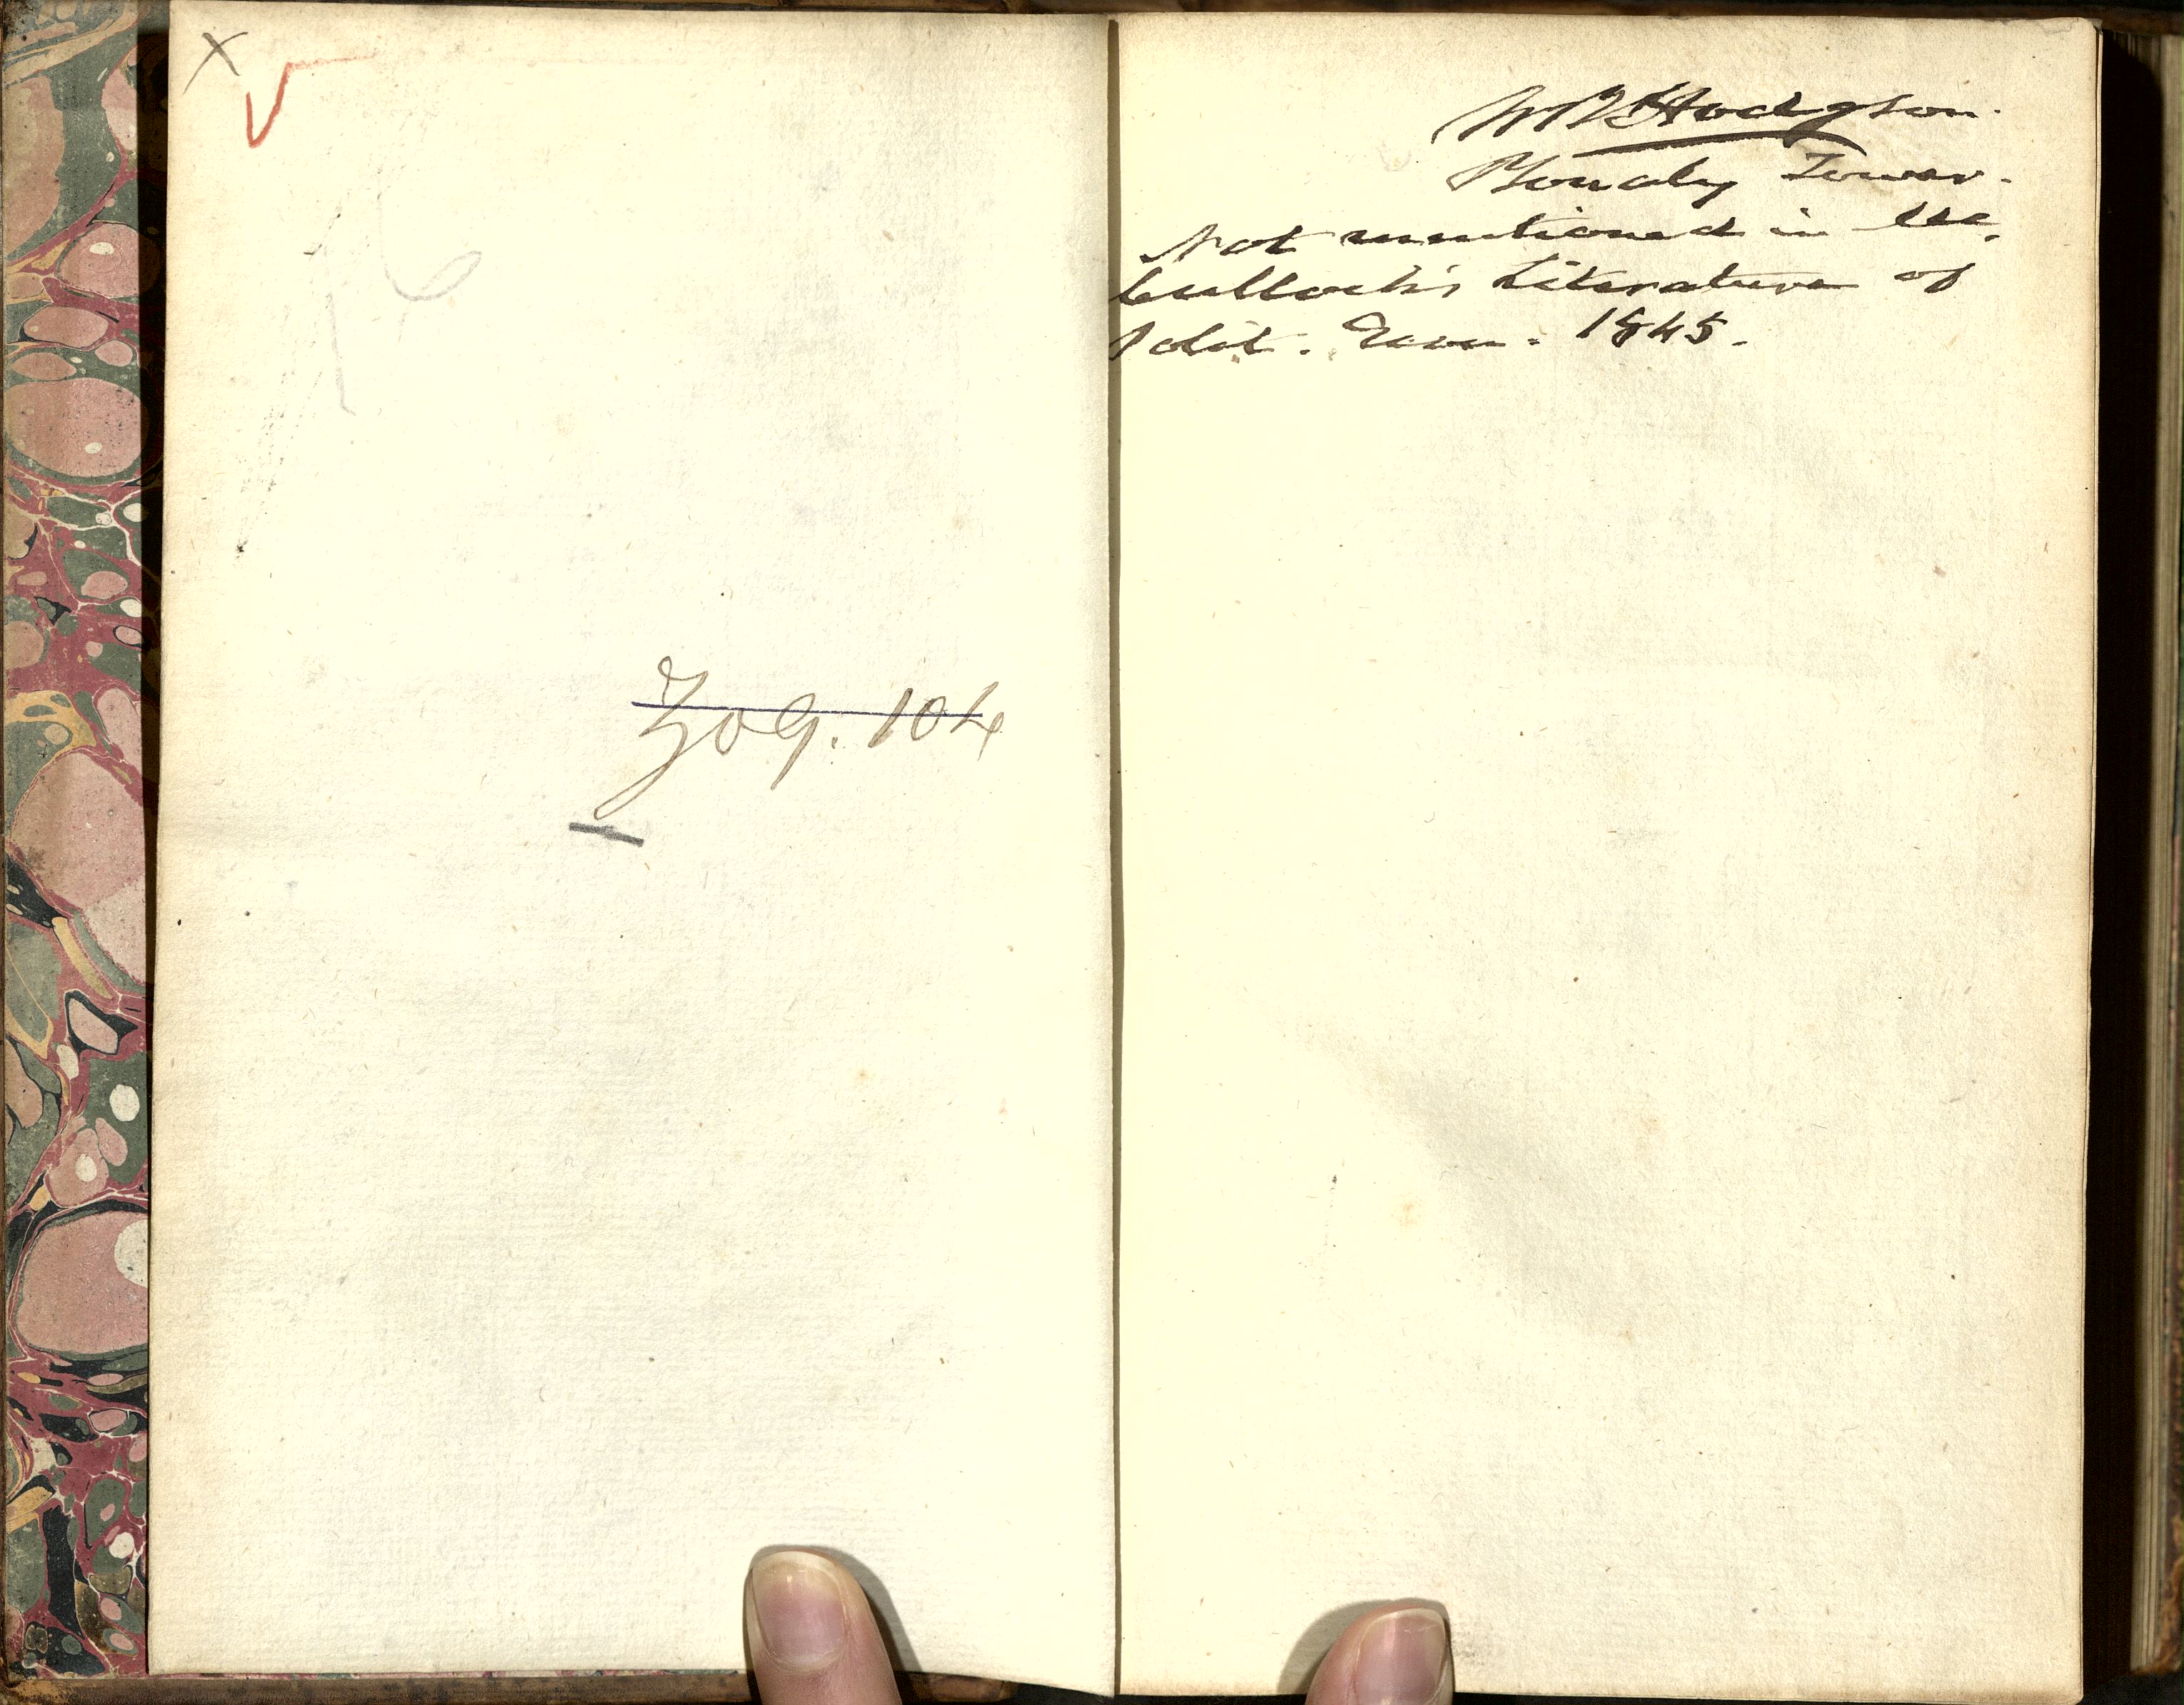 x
Z09.104
W B Hodgson.
Bonaly Tower.
Not mentioned in Mc.
Culloch's Literature of
Polit. Econ. 1845.